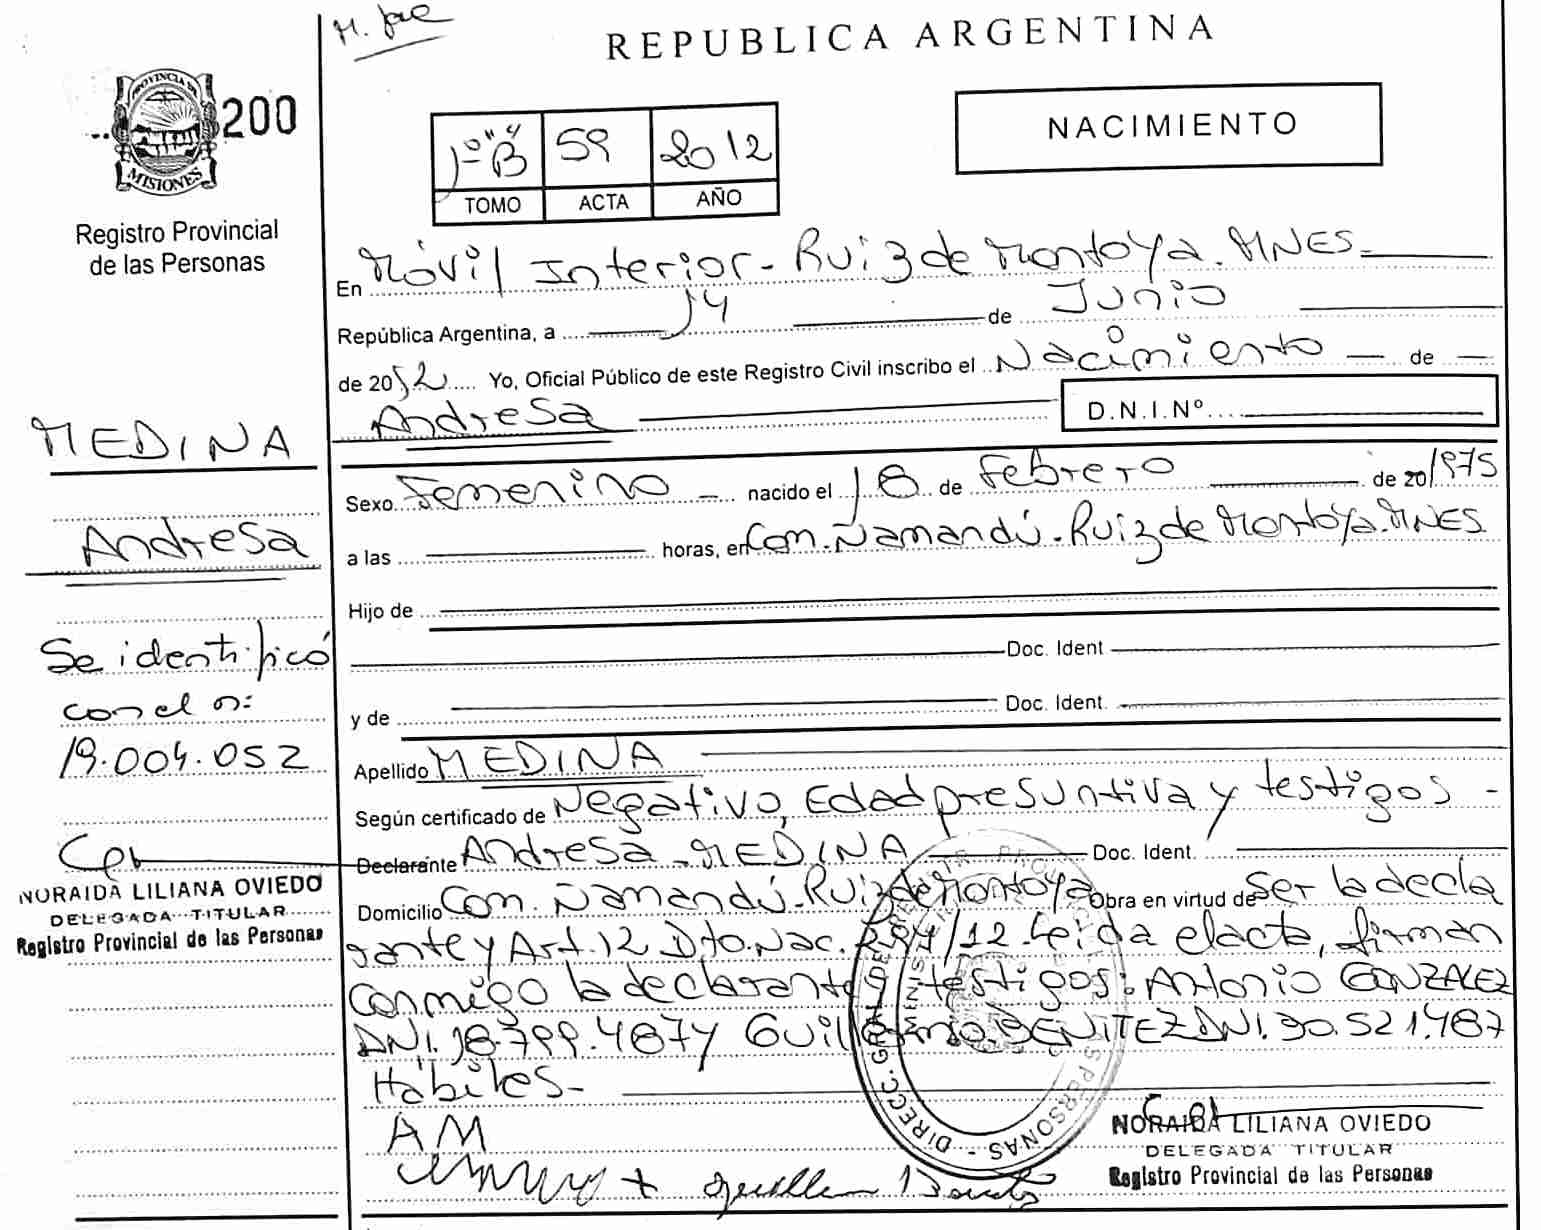 REPUBLICA ARGENTINA
PROVINCIA DE
MISIONES
200
Registro Provincial
de las Personas
1º "B" 59 2012
TOMO ACTA AÑO
NACIMIENTO
En Móvil Interior - Ruiz de Montoya. MNES
República Argentina, a 14 de Junio
de 2012 Yo, Oficial Público de este Registro Civil inscribo el Nacimiento de
Andresa D.N.I.Nº
Sexo Femenino nacido el 18 de Febrero de 20/1975
a las horas, en Com. Ñamandú. Ruiz de Montoya. MNES
Hijo de
Doc. Ident
y de Doc. Ident.
Apellido MEDINA
Según certificado de Negativo, Edad presuntiva y testigos -
Declarante Andresa - MEDINA Doc. Ident.
Domicilio Com. Ñamandú - Ruiz de Montoya Obra en virtud de Ser la decla
rante y Art. 12 Dto. Nac. /12. Leída el acta, firman
conmigo la declarante testigos: Antonio GONZALEZ
DNI. 18.799.487 y Guillermo BENITEZ DNI. 30.521.487
Hábiles -
AM
NORAIDA LILIANA OVIEDO
DELEGADA TITULAR
Registro Provincial de las Personas
MEDINA
Andresa
Se identificó
con el n:
19.004.052
NORAIDA LILIANA OVIEDO
DELEGADA TITULAR
Registro Provincial de las Personas